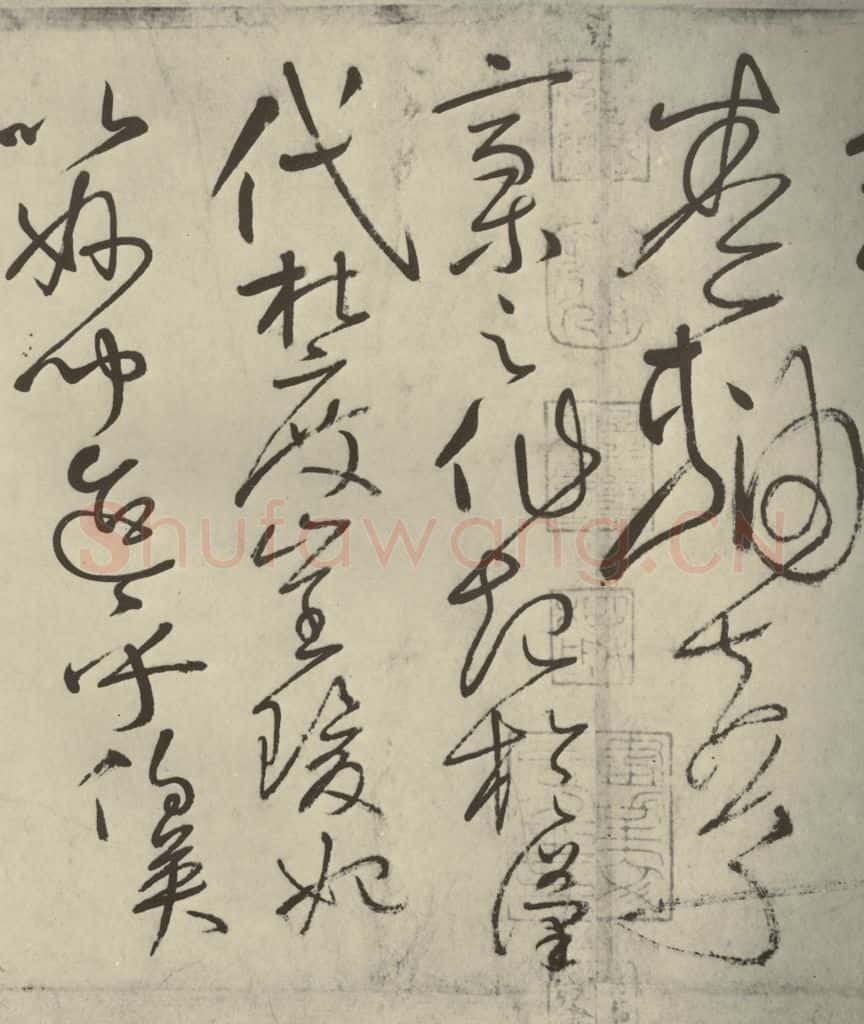 卷軸夫草
稾之作起於漢
代杜度崔瑗始
以妙聞迨乎伯英
Shufawang.CN